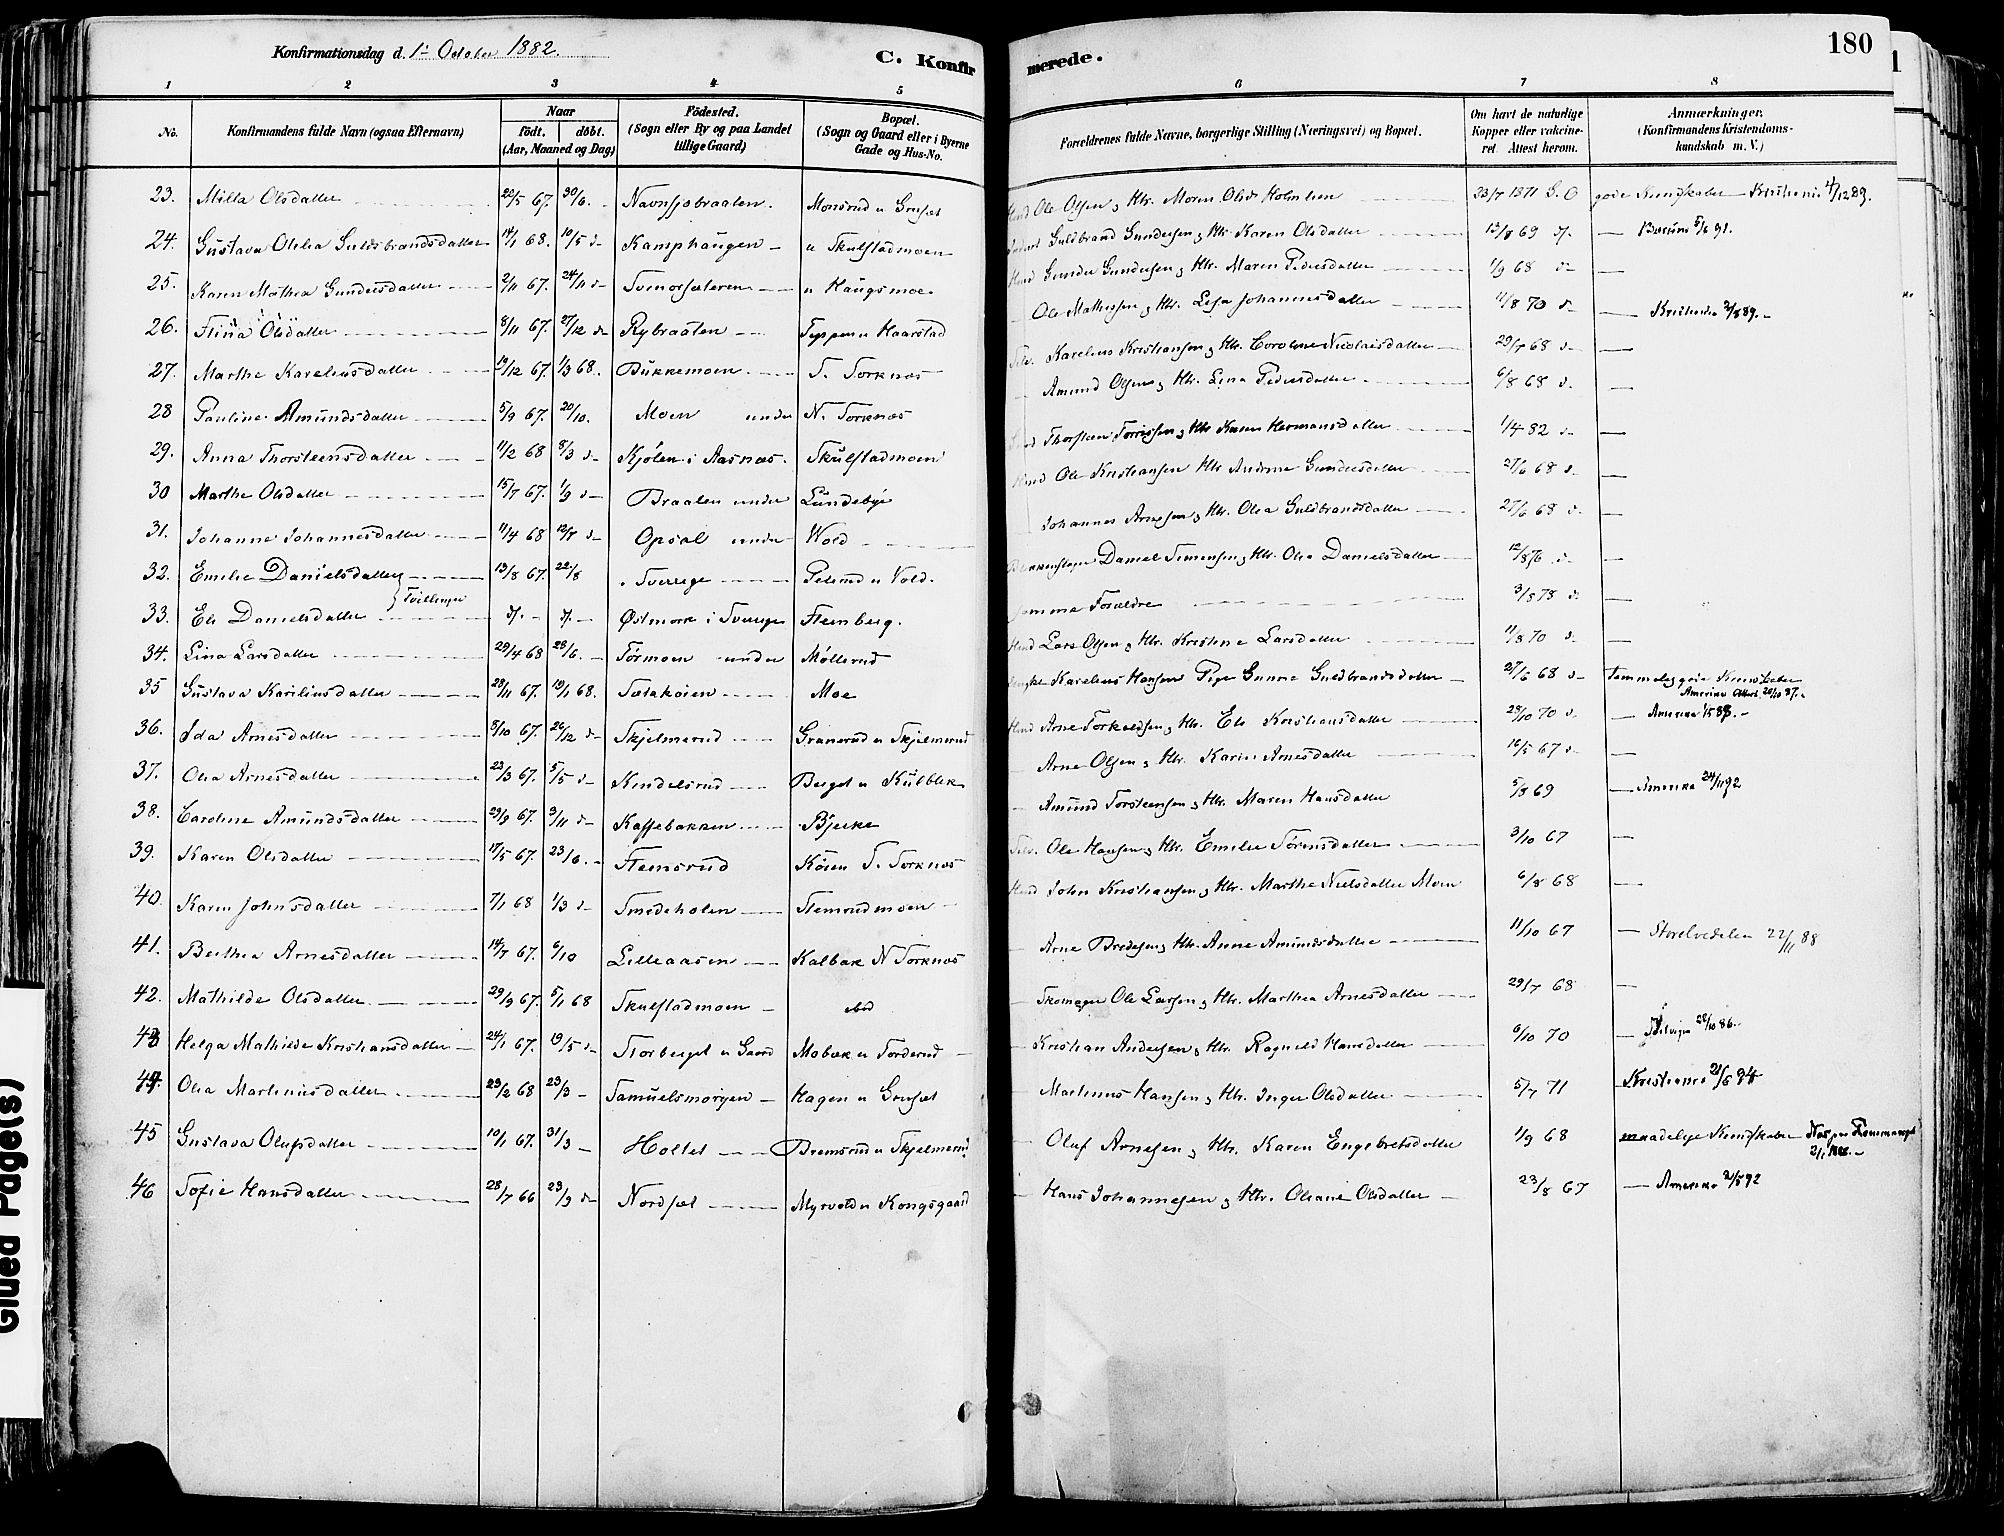 Konfirmationsdag d. 1ste October 1882.
C. Konfirmerede.
180
1 2 3 4 5 6 7 8
No.
Konfirmandens fulde Navn (ogsaa Efternavn)
Naar
født. døbt.
(Aar, Maaned og Dag)
Födested.
(Sogn eller By og paa Landet
tillige Gaard)
Bopæl.
(Sogn og Gaard eller i Byerne
Gade og Hus-No.
Forældrenes fulde Navne, borgerlige Stilling (Næringsvei) og Bopæl.
Om havt de naturlige
Kopper eller vakcine-
ret Attest herom.
Anmærkninger.
(Konfirmandens Kristendoms-
kundskab m. V.)
23. Milla Olsdatter 20/5 67. 30/6. Monsrud u Grasset Ole Olsen og Htr. Maren Olsd Holmen 23/7 1871 gode Kundskaber Kristiania 4/12 89.
24. Gustava Otilia Guldbrandsdatter 14/1 68. 10/5 d- Kamphaugen u Skulstadmoen Guldbrand Gundersen og Htr. Karen Olsdatter 13/8 69 — Bærum 5/6 91.
25. Karen Mathea Gundersdatter 2/11 67. 24/11 d- u Haugsmoe Gunder Gundersen og Htr. Maren Pedersdatter 1/9 68 d- —
26. Stina Olsdatter 8/11 67. 27/12 d- Rybraaten Teppen u Haarstad Ole Mathesen og Htr. Lisa Johannesdatter 11/8 70 d- — Kristiania 2/8 89.-
27. Marthe Kareliusdatter 19/12 67. 1/3 68. Bukkemoen S. Torknæs Karelius Kristiansen og Htr. Caroline Nicolaisdatter 29/7 68 d- —
28 Pauline Amundsdatter 5/9 67. 20/10. Moen under N. Torknæs Amund Olsen og Htr. Lina Pedersdatter 6/8 68 d. —
29. Anna Thorsteensdatter 11/2 68 8/3 d- Kjølen i Aasnæs. Skulstadmoen Thorsteen Torrissen og Htr Karen Hermansdatter 1/4 82 d- —
30 Marthe Olsdatter 15/7 67. 1/9 d- Braaten under Lundebye Ole Kristiansen Htr Andrine Gundersdatter 27/6 68 d- —
31. Johanne Johannesdatter 11/4 68 Opsal under Wold Johannes Arnesen og Htr. Olea Guldbrandsdatter 27/6 68 d- —
32. Emilie Danielsdatter 19/8 67. 22/8 Sverrige Peterud u Vold. Daniel Simensen og Htr. Olea Danielsdatter 12/8 76 d- —
Tvillinger
33. Eli Danielsdatter Østmark i Sverige Stemberg. Samme Forældre 3/8 78 d- —
34. Lina Larsdatter 29/4 68 28/6. Tørmoen under Møllerud Lars Olsen og Htr. Kristine Larsdatter 11/8 70 d- —
35 Gustava Kariliusdatter 28/11 67. 19/1 68. Sætakøien Moe Karelius Hansen Pige Gunne Guldbrandsdatter 27/6 68 d- temmelig gode Kundskaber
Amerika Attest. 20/10 87.-
36. Ida Arnesdatter 8/10 67. 26/12 d- Skjelmerud Granerud u Skjelmerud Arne Torkeldsen og Htr. Eli Kristiansdatter 28/10 70 d- — Amerika
37. Olea Arnesdatter 23/3 67. 5/5 d- Kindelsrud Berget u Kulblik Arne Olsen og Htr. Karin Arnesdatter 16/5 67 d- —
38. Caroline Amundsdatter 29/9 67. 3/11 d- Kaffebakken Bjerke Amund Torsteensen og Htr. Maren Hansdatter 5/8 69 — Amerika 24/11 92
39. Karen Olsdatter 17/5 67. 23/6. Stemsrud Køien S. Torknæs Ole Hansen og Htr. Emilie Sørensdatter 3/10 67 —
40. Karen Johnsdatter 7/1 68 1/3 d- Smedeholen Stemsrudmoen John Kristiansen og Htr. Marthe Nielsdatter Moen 6/8 68 —
41. Berthea Arnesdatter 14/7 67. 6/10 Lilleaasen Kalbæk N Torknæs Arne Bredesen og Htr. Anne Amundsdatter 11/10 67 — Storelvedalen 22/11 88
42. Mathilde Olsdatter 29/9 67. 5/1 68 Skulstadmoen ibid Skomager Ole Larsen og Htr. Marthea Arnesdatter 29/7 68 —
43 Helga Mathilde Kristiansdatter 24/1 67. 19/5 d- Storberget u Gaard Mobæk u Torderud Kristian Andersen og Htr. Ragnild Hansdatter 6/10 70 — 28/10 86.
44. Olea Martiniusdatter 23/2 68 23/3 Samuelsmorgen Hagen u Grasset Martinus Hansen og Htr. Inger Olsdatter 5/7 71 Kristiania
45 Gustava Olufsdatter 10/1 67. 31/3 Holtet Bremsrud u Skjelmerud Oluf Arnesen og Htr. Karen Engebretsdatter 1/9 68 maadelige Kundskaber
46 Sofie Hansdatter 28/7 66 23/9 d- Nordset Myrvold u Kongsgaard Hans Johannesen og Htr. Oleane Olsdatter 23/8 67 — Amerika
Glued Page(s)